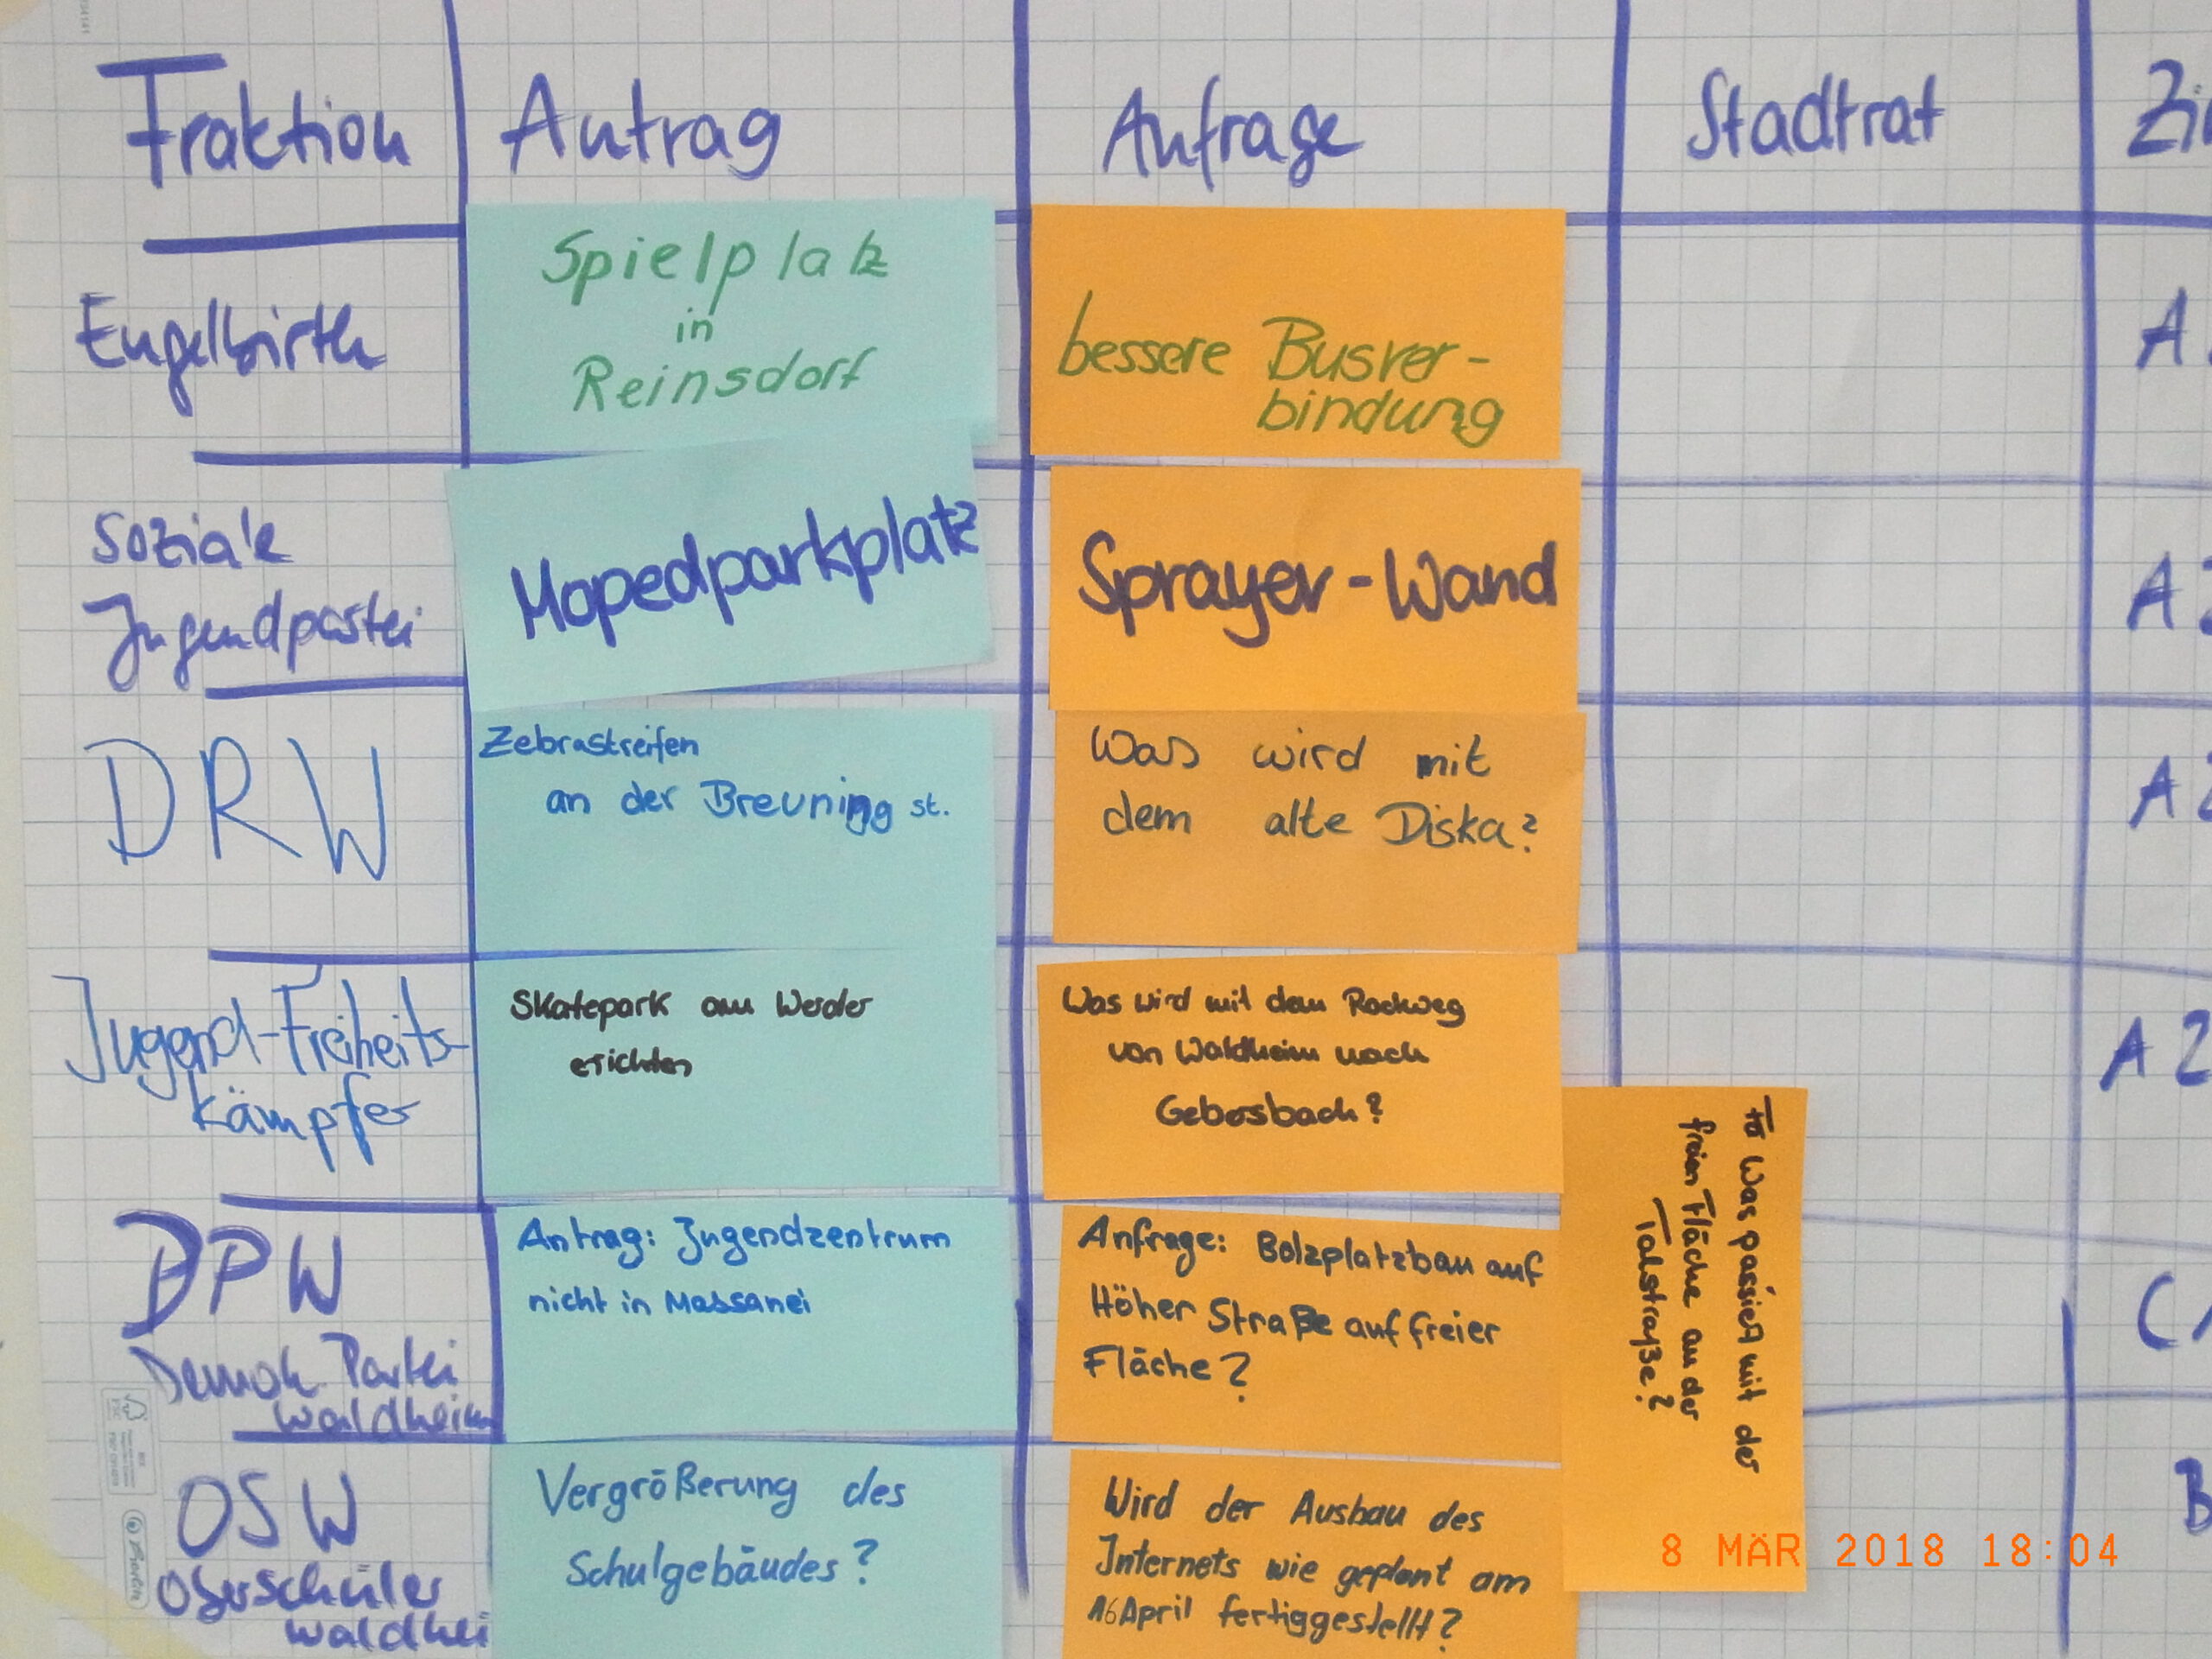 Fraktion
Antrag
Anfrage
Stadtrat
Engelbirth
Spielplatz
in
Reinsdorf
bessere Busver-
bindung
Soziale
Jugendpartei
Mopedparkplatz
Sprayer-Wand
DRW
Zebrastreifen
an der Breuning st.
Was wird mit
dem alte Diska?
Jugend-Freiheits-
kämpfer
Skatepark am Werder
erichten
Was wird mit dem Radweg
von Waldheim nach
Gebersbach?
Was passiert mit der
freien Fläche an der
Talstraße?
DPW
Demok. Partei
Waldheim
Antrag: Jugendzentrum
nicht in Massanei
Anfrage: Bolzplatzbau auf
Höher Straße auf freier
Fläche?
OSW
Oberschüler
Waldhei
Vergrößerung des
Schulgebäudes?
Wird der Ausbau des
Internets wie geplant am
16 April fertiggestellt?
8 MÄR 2018 18:04